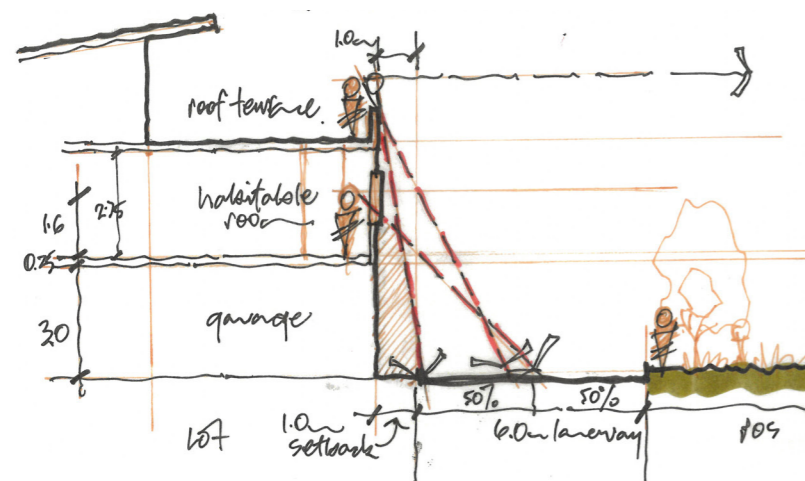 1.0m
roof terrace.
habitable
room
1.6
2.75
0.25
garage
3.0
50%
50%
LOT
1.0m
setback
6.0m laneway
POS